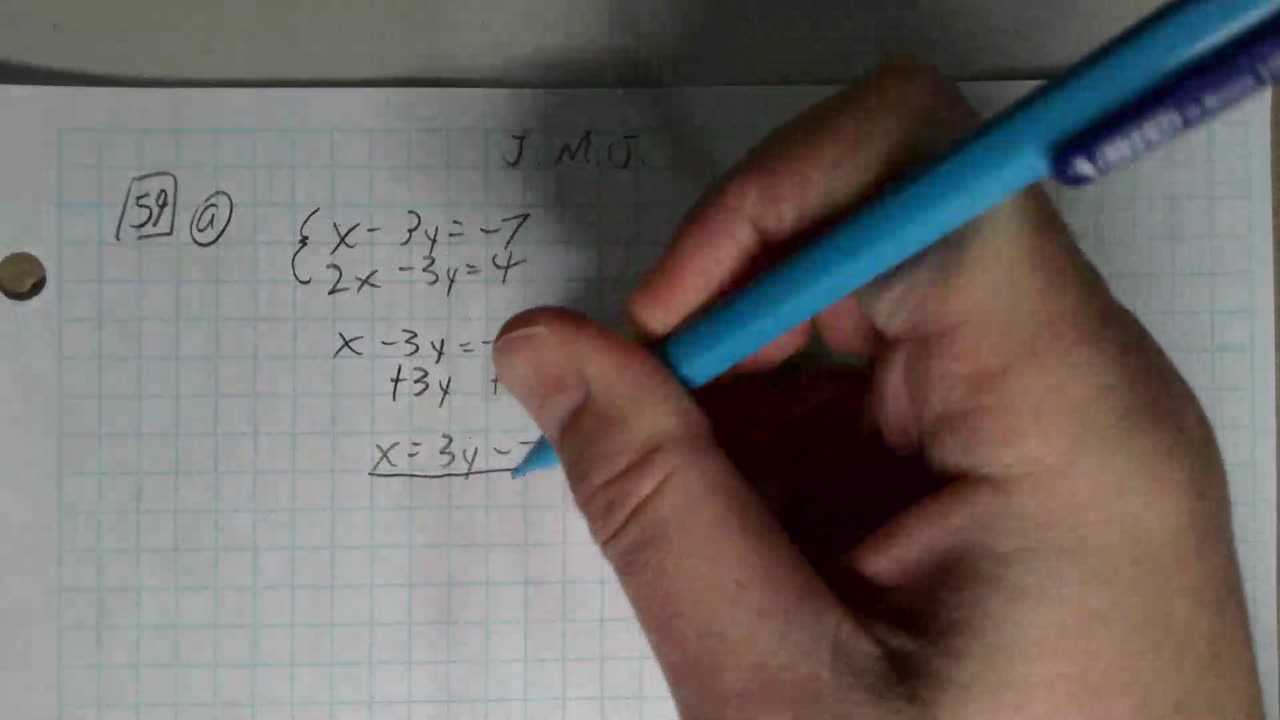 J.M.J.
59 a
x - 3y = -7
2x - 3y = 4
x - 3y = -
+3y +
x = 3y - 7